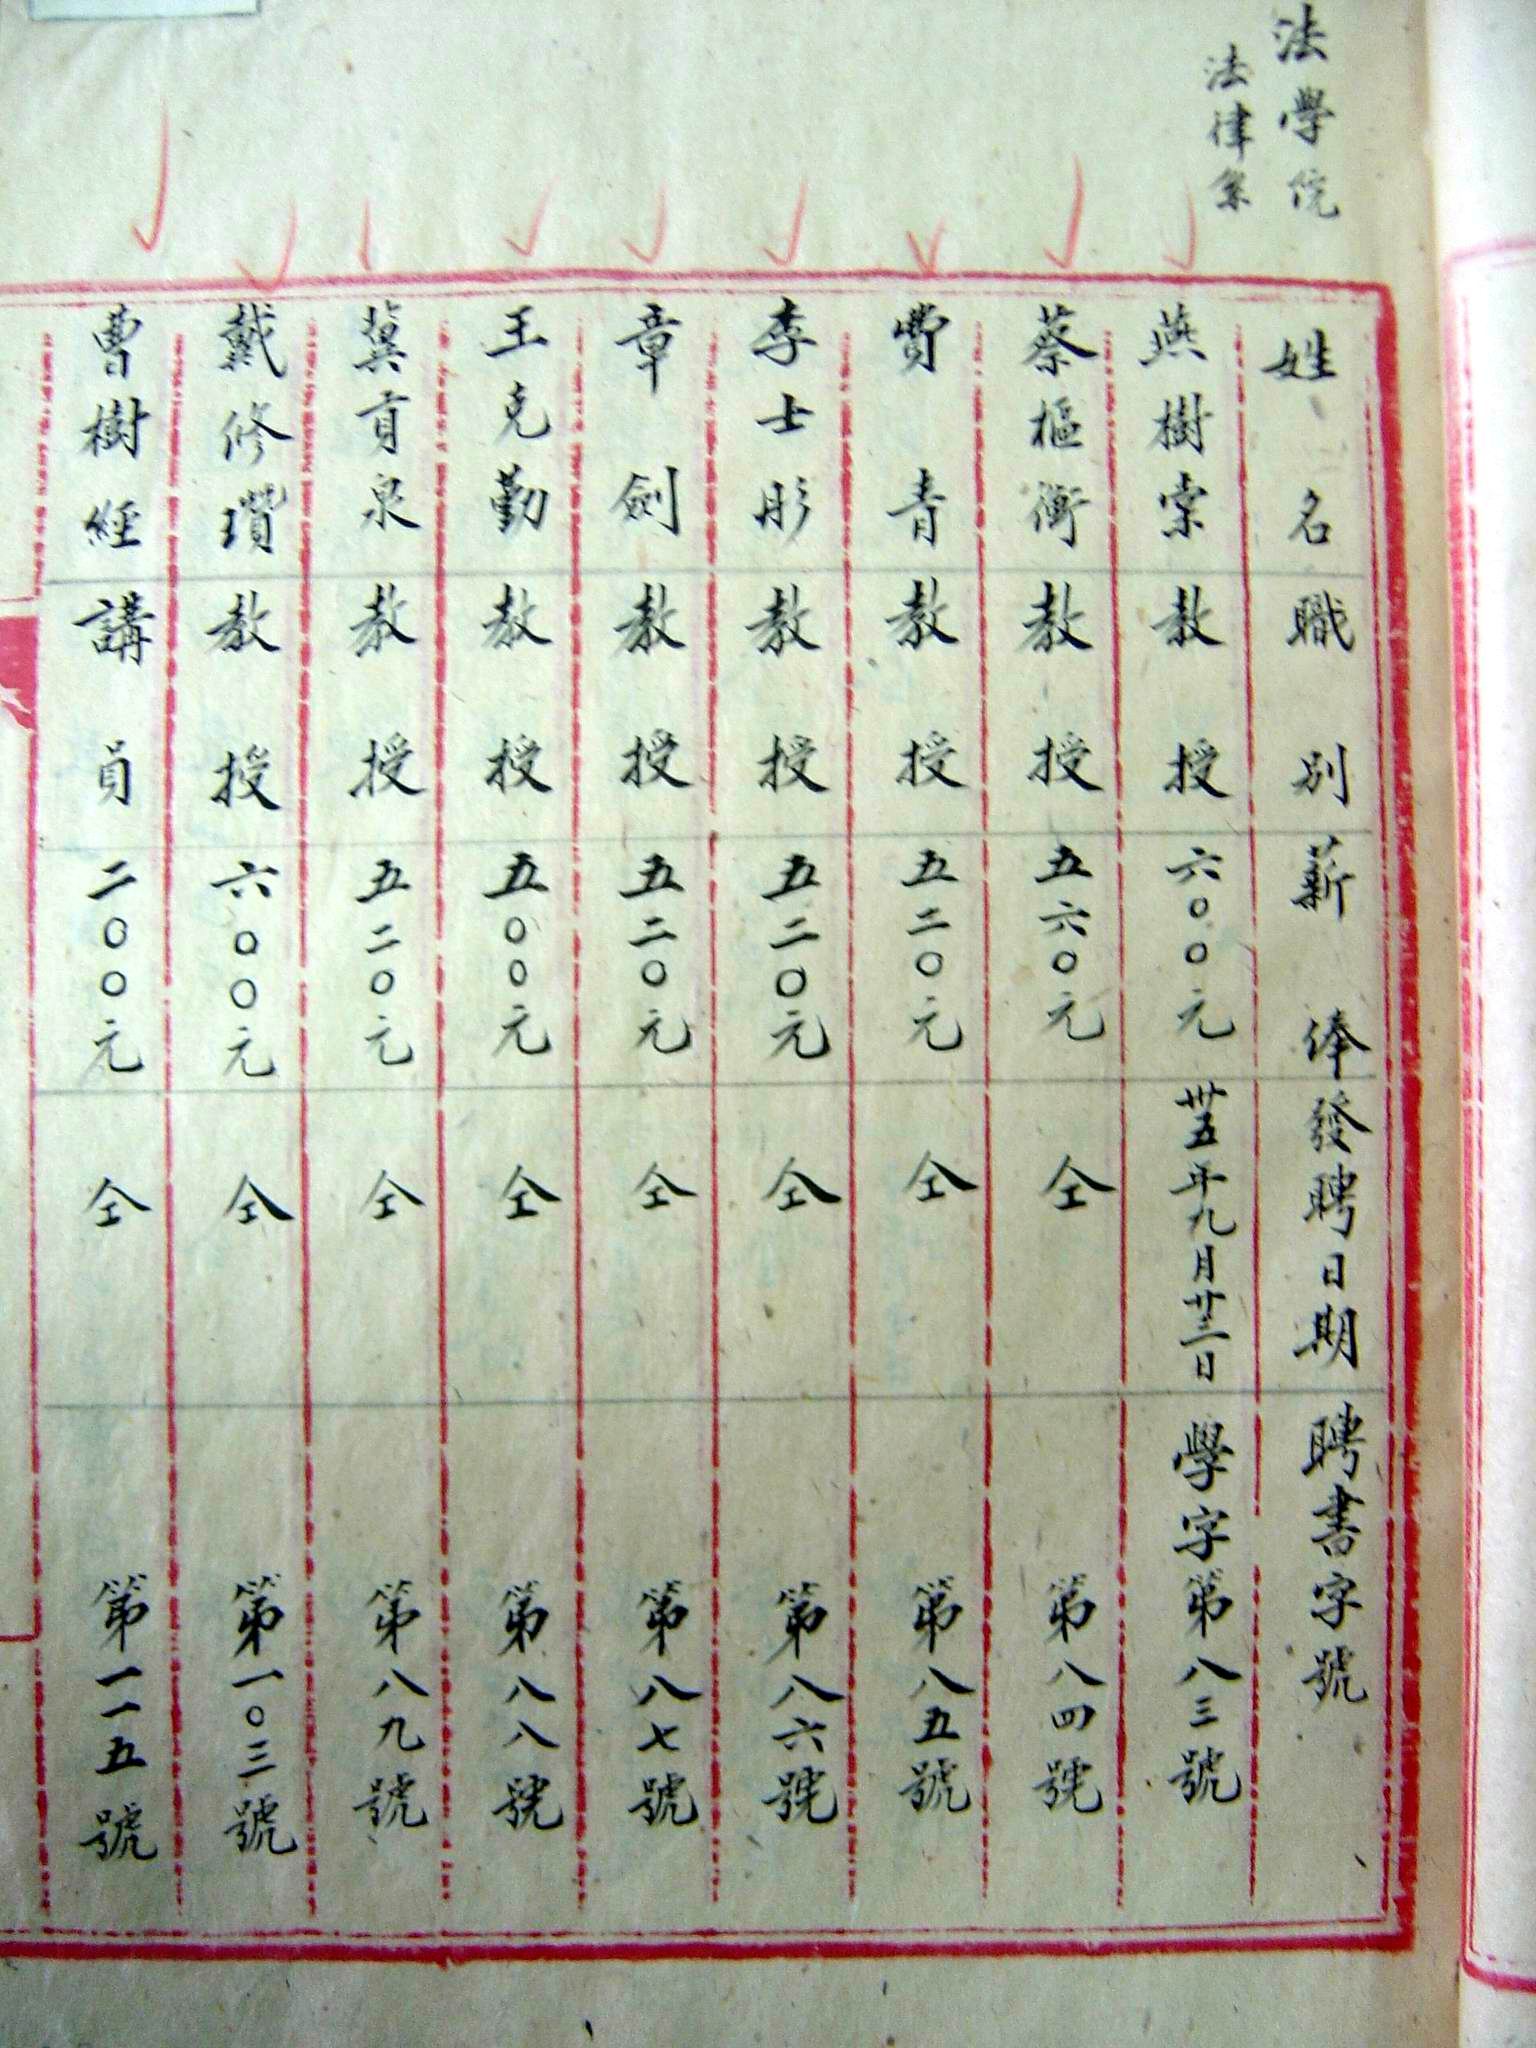 法學院
法律系
姓名 職別 薪俸 發聘日期 聘書字號
燕樹棠 教授 六〇〇元 卅五年九月廿三日 學字第八三號
蔡樞衡 教授 五六〇元 仝 第八四號
費青 教授 五二〇元 仝 第八五號
李士彤 教授 五二〇元 仝 第八六號
章劍 教授 五二〇元 仝 第八七號
王克勤 教授 五〇〇元 仝 第八八號
冀貢泉 教授 五二〇元 仝 第八九號
戴修瓚 教授 六〇〇元 仝 第一〇三號
曹樹經 講員 二〇〇元 仝 第一一五號